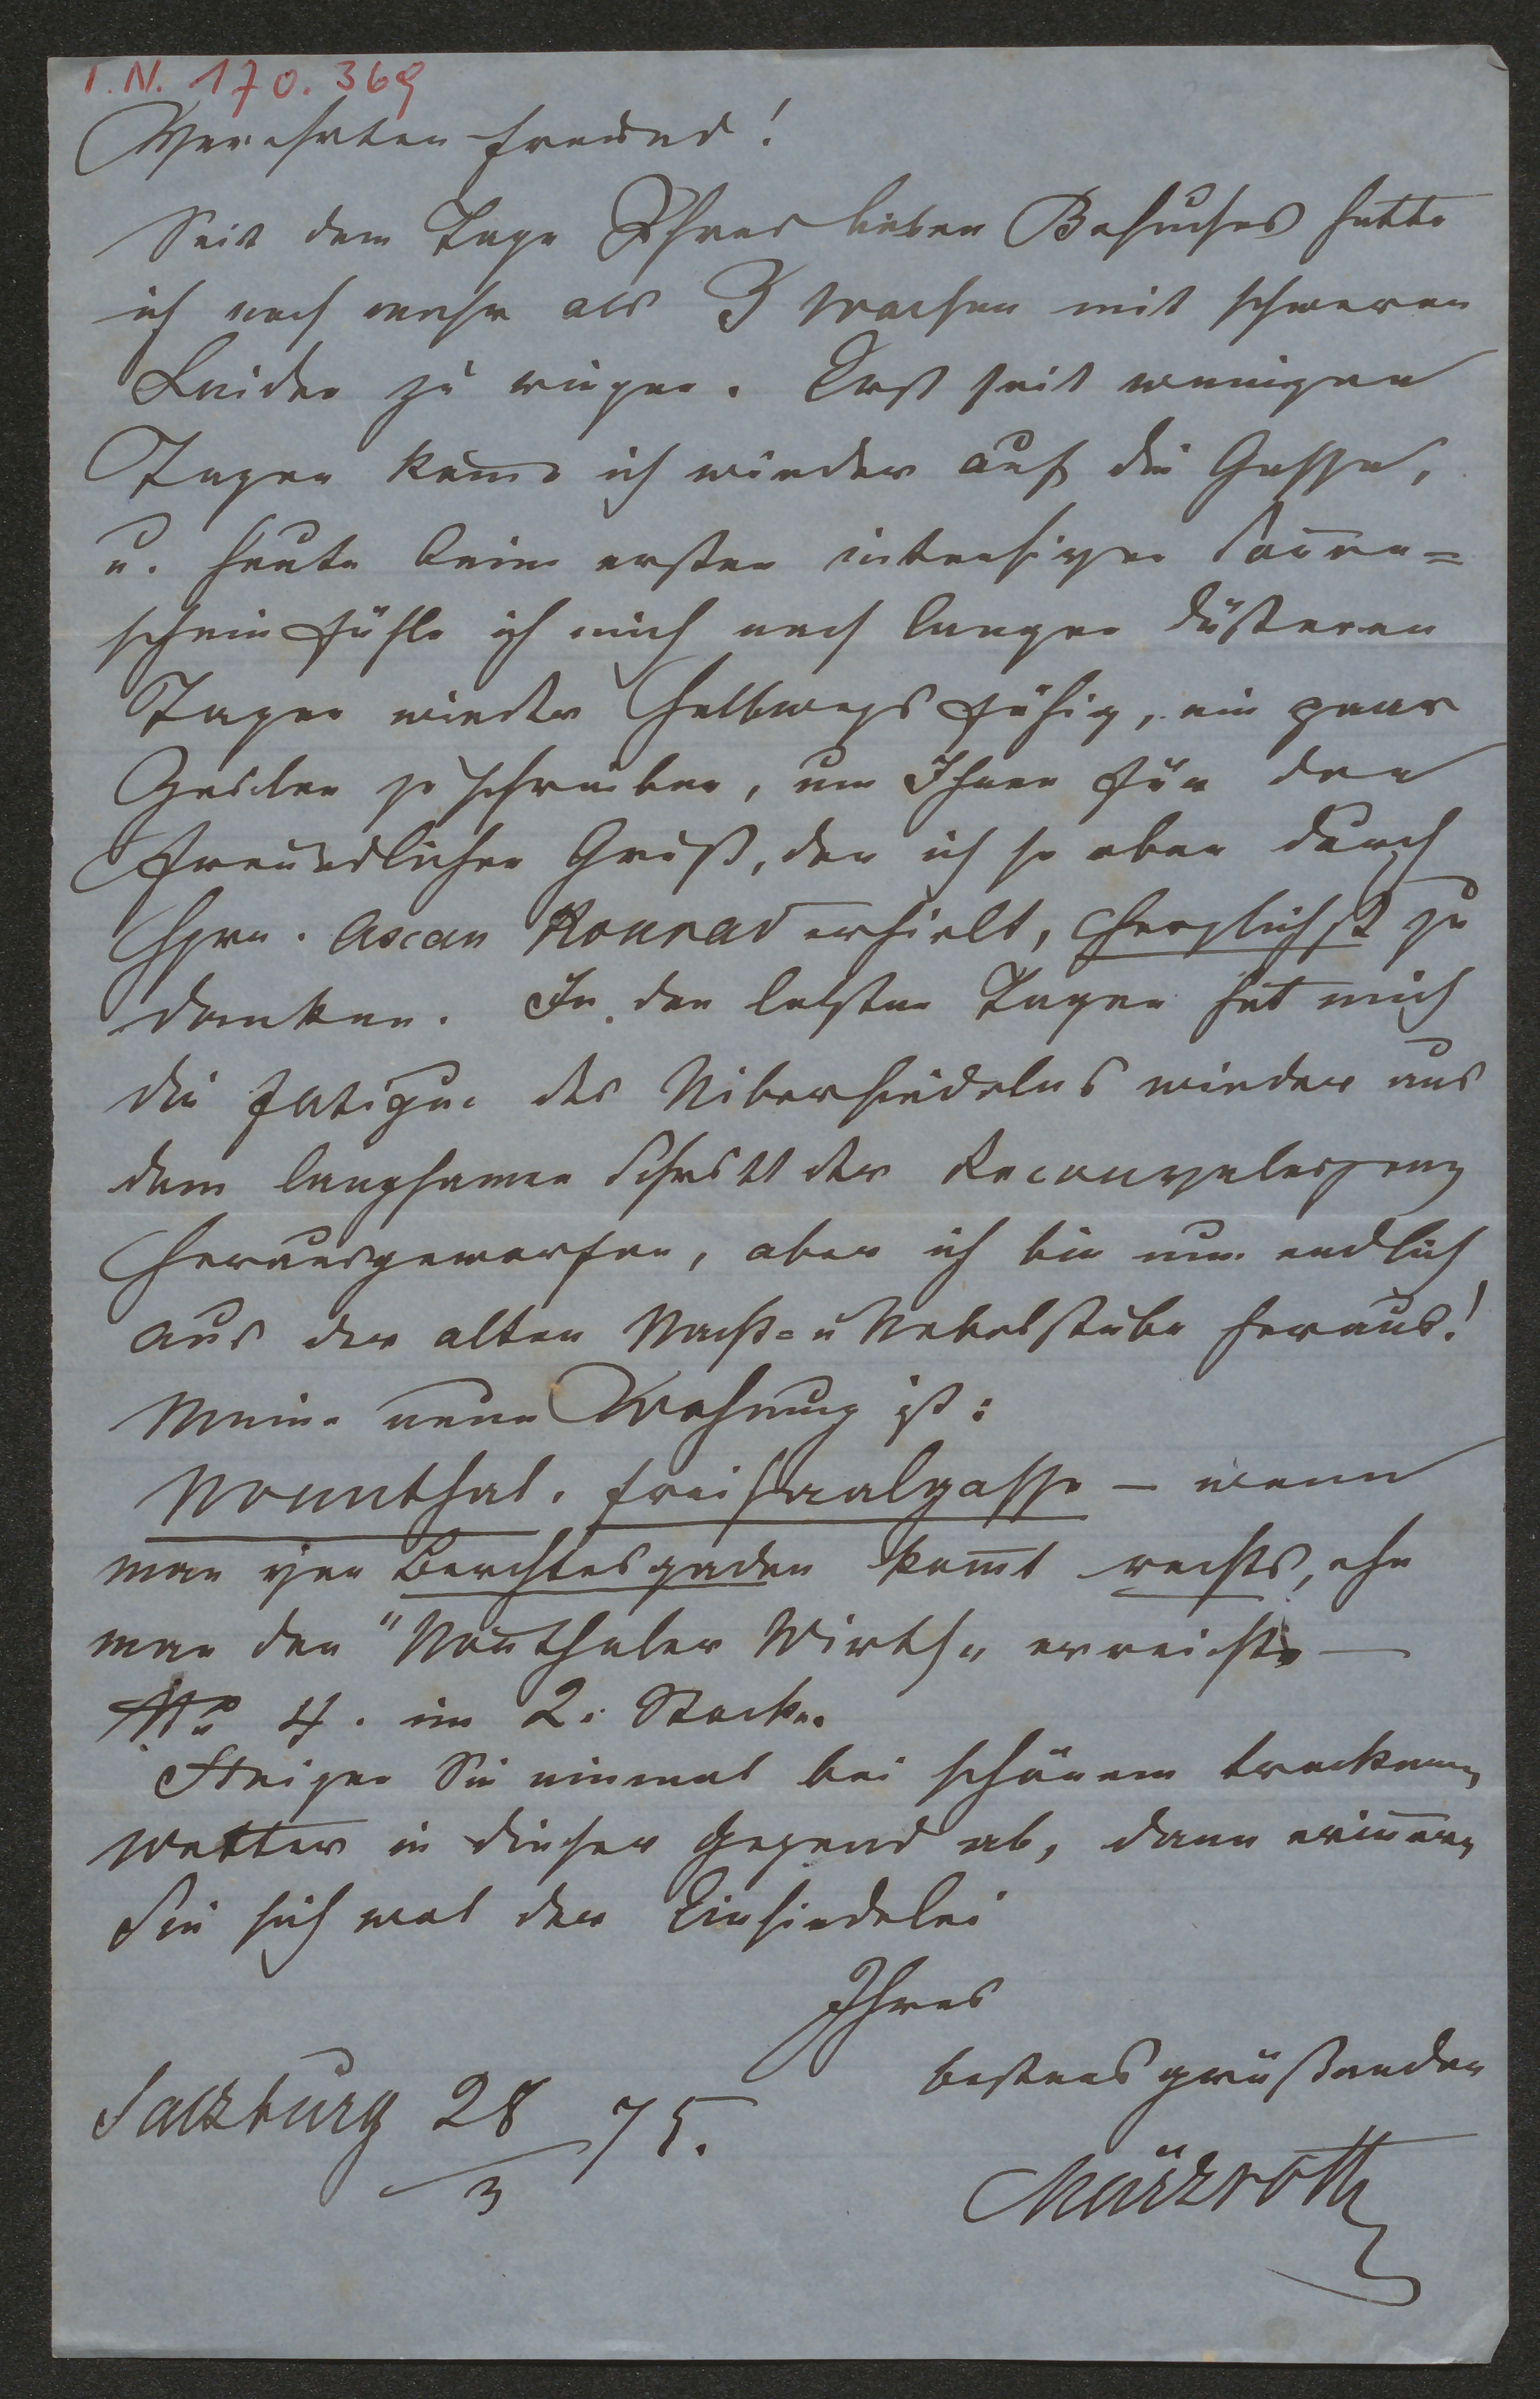 I. N. 170.369
Verehrter Freund!
Seit dem Tage Ihres lieben Besuches hatte
ich noch mehr als 3 Wochen mit schweren
Leiden zu ringen. Erst seit wenigen
Tagen kam̅e ich wieder auf die Gasse,
u. heute beim ersten intensiven Son̅en=
schein fühle ich mich nach langen düsteren
Tagen wieder halbwegs fähig, ein paar
Zeilen zu schreiben, um Ihnen für den
freundlichen Gruß, den ich so eben durch
Hrn. Ascan Konrad erhielt, herzlichst zu
danken. In den letzten Tagen hat mich
die Fatigue des Uibersiedelns wieder aus
dem langsamen Schritt der Reconvalescenz
herausgeworfen, aber ich bin nun endlich
aus der alten Nacht- u Nebelstube heraus!
Meine neue Wohnung ist:
Nonnthal. Freisaalgasse – wenn
man von Berchtesgaden kom̅t rechts, ehe
man den "Non̅thaler Wirth" erreicht –
No 4. im 2. Stock.
Steigen Sie einmal bei schönem trockenen
Wetter in dieser Gegend ab, dann erin̅ern
Sie sich mal der Einsiedelei
Ihres
bestens grüßenden
Salzburg 28/3 75.
Märzroth